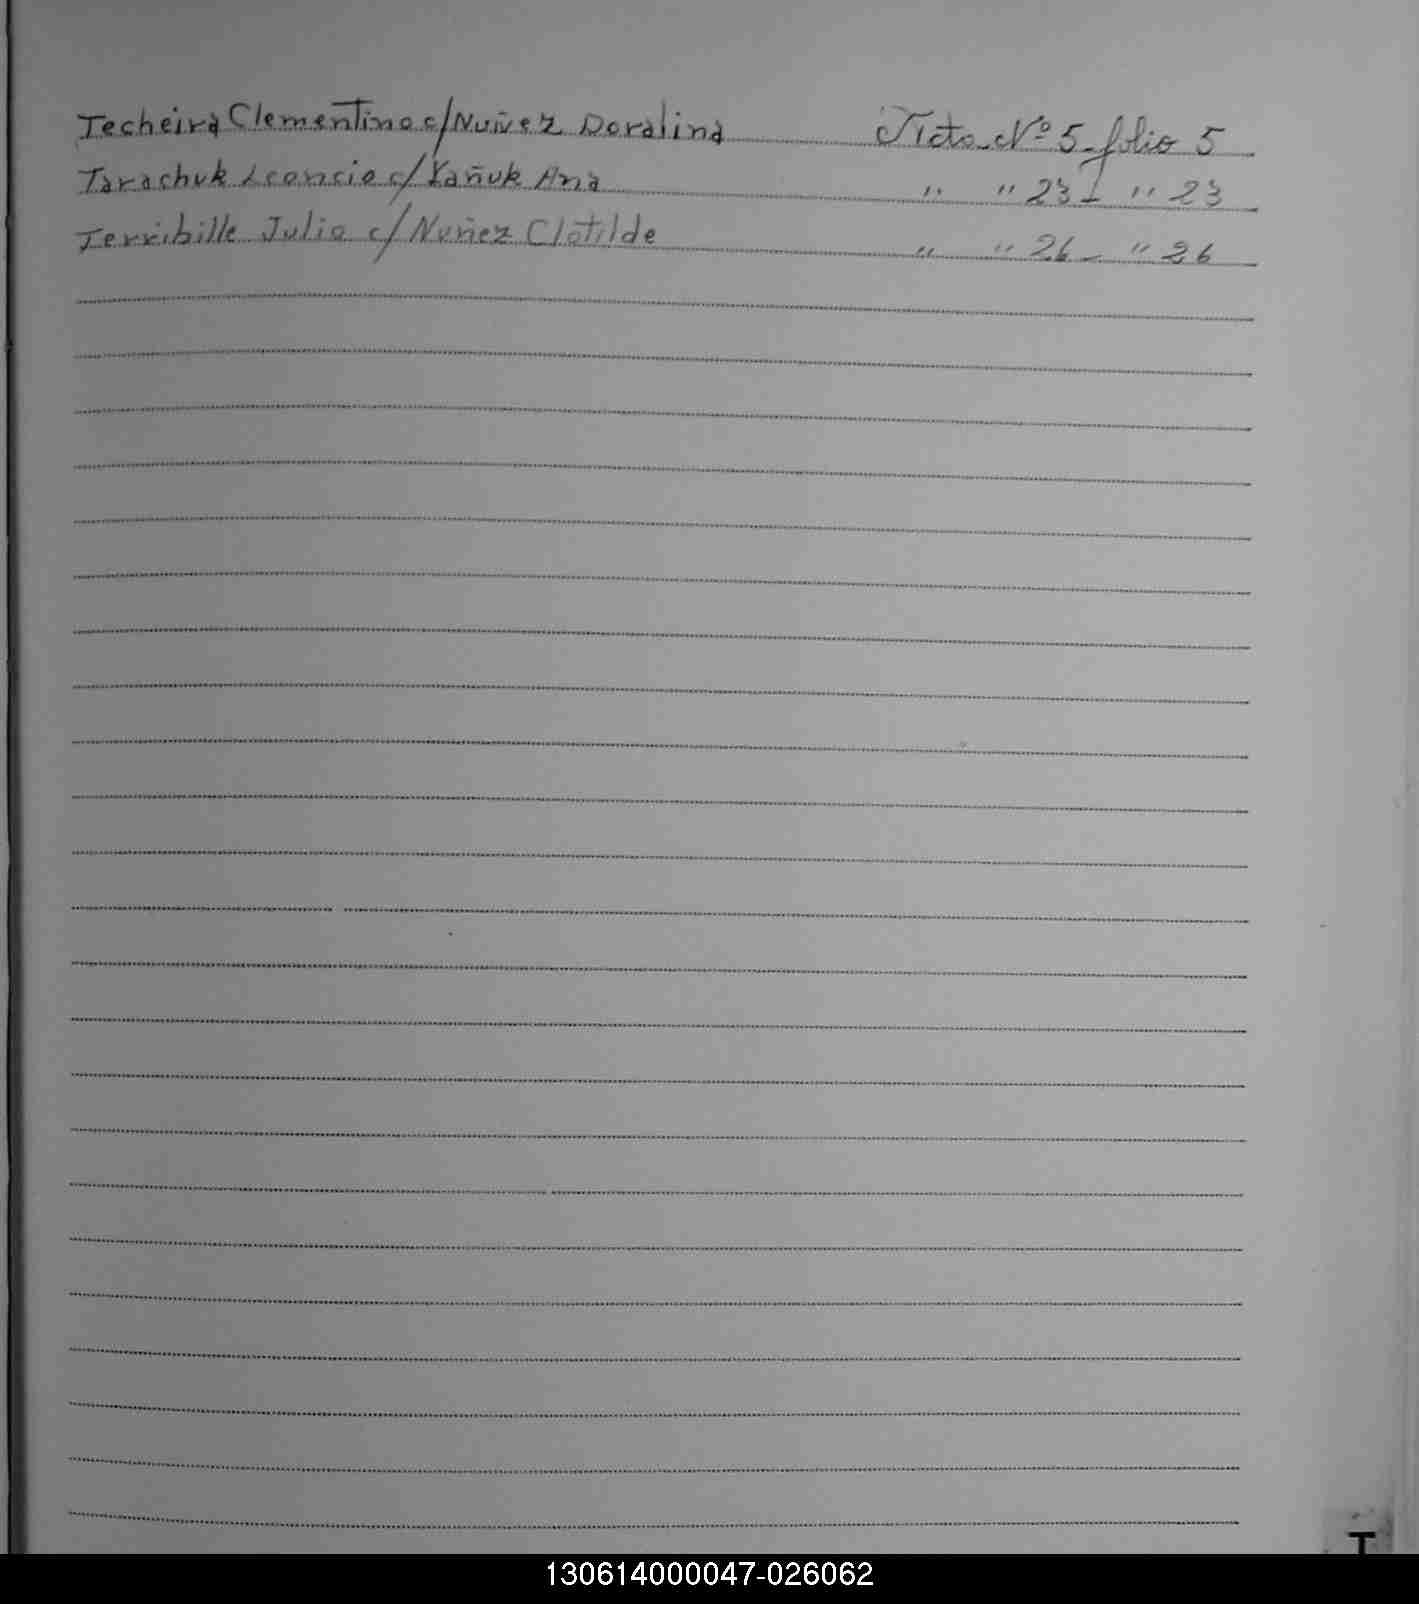 Techeira Clementino c/Nuñez Doralina Acta Nº 5 - folio 5
Tarachuk Leoncio c/Yañuk Ana " " 23 - " 23
Terribille Julio c/Nuñez Clotilde " " 26 - " 26
T
130614000047-026062